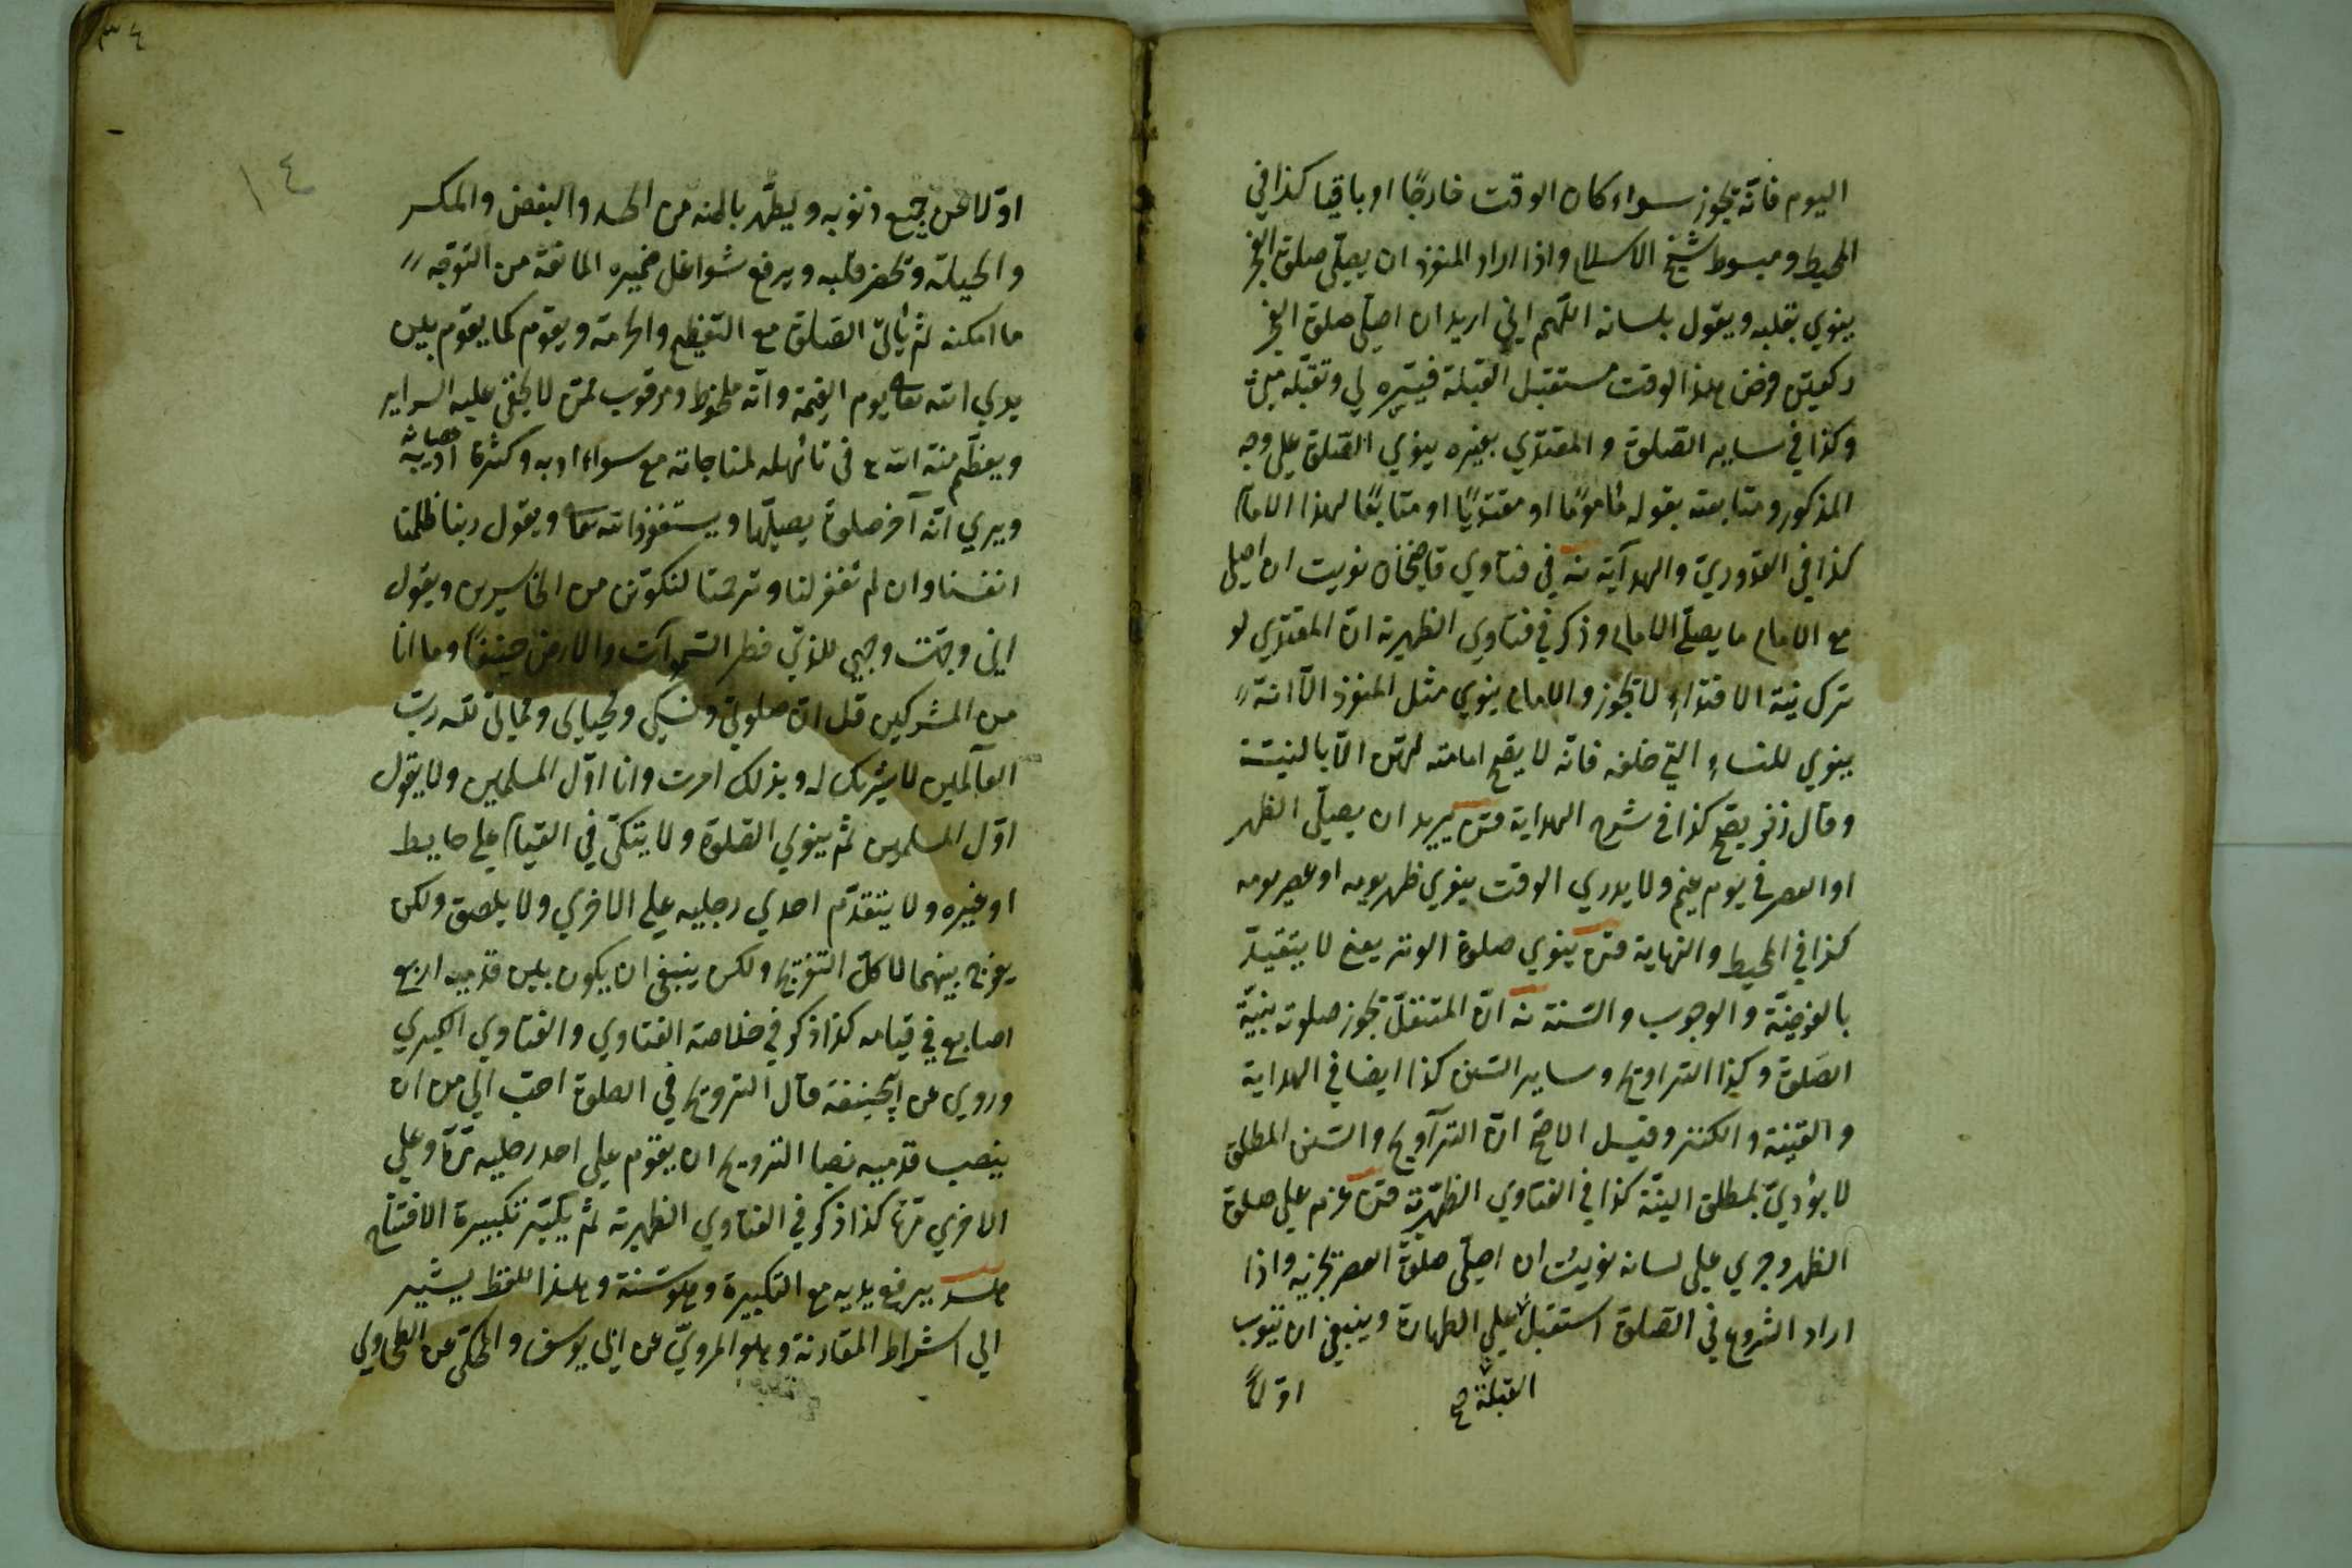 اليوم فانّه تجوز سواء كان الوقت خارجًا او باقيا كذا في
المحيط ومبسوط شيخ الاسلام واذا اراد المنفرد ان يصلّي صلوة الفجر
ينوي بقلبه ويقول بلسانه اللّهم اني اريد ان اصلّي صلوة الفجر
ركعتين فرض هذا الوقت مستقبل القبلة فيسّره لي وتقبّله منّي
وكذا في ساير الصّلوة والمقتدي بغيره ينوي الصّلوة علي وجه
المذكور ومتابعته بقوله مأمومًا او مقتديًا او متابعًا لهذا الامام
كذا في القدوريّ والهدآية منه في فتاوي قاضخان نويت ان اصلي
مع الامام ما يصلّي الامام وذكر في فتاوي الظهيرية انّ المقتدي لو
ترك نية الاقتداء لا تجوز والامام ينوي مثل المنفرد الّا انّه
ينوي للنساء التي خلفه فانّه لا يصح امامته لهنّ الّا بالنيّة
وقال زفر يصحّ كذا في شرح الهداية من يريد ان يصلّي الظهر
او العصر في يوم غيم ولا يدري الوقت ينوي ظهر يومه او عصر يومه
كذا في المحيط والنهاية من ينوي صلوة الوتر يعني لا يتقيّد
بالفرضيّة والوجوب والسّنة منه انّ المتنفّل تجوز صلوته بنيّة
الصّلوة وكذا التراويح وساير السّنن كذا ايضا في الهداية
والقنية والكنز وقيل الاصحّ انّ الترآويح والسّنن المطلق
لا يؤديّ بمطلق النيّة كذا في الفتاوي الظهيريّة من عزم علي صلوة
الظهر وجري علي لسانه نويت ان اصلّي صلوة العصر تجزيه واذا
اراد الشروع في الصّلوة استقبل علي الطهارة وينبغي ان يتوب
القبلة صح
اوّلًا
٣٤
١٤
اوّلا عن جميع ذنوبه وليطهّر باطنه من الحسد والبغض والمكر
والحيلة وتحضر قلبه ويرفع شواغل ضميره المانعة من التوجّه
ما امكنه ثم يأتي الصّلوة مع التعظيم والحرمة ويقوم كما يقوم بين
يدي الله تعالى يوم القيمة وانّه ملحوظ ومرقوب لمن لا يخفي عليه السراير
ويعظّم منة الله في تأهله لمناجاته مع سواء ادبه وكثرة
ويري انّه آخر صلوة يصلّيها ويستغفر الله تعالى ويقول ربنا ظلمنا
انفسنا وان لم تغفر لنا وترحمنا لنكونّن من الخاسرين ويقول
اني وجّهت وجهي للذي فطر السّموآت والارض حنيفًا وما انا
من المشركين قل انّ صلوتي ونسكي ومحياي ومماتي للّه ربّ
العآلمين لا شريك له وبذلك امرت وانا اوّل المسلمين ولا يقول
اوّل المسلمين ثم ينوي الصّلوة ولا يتكئ في القيام علي حايط
او غيره ولا يتقدّم احدي رجليه علي الاخري ولا يلصق ولكن
يفرج بينهما لا كلّ التفريج ولكن ينبغي ان يكون بين قدميه اربع
اصابع في قيامه كذا ذكر في خلاصة الفتاوي والفتاوي الكبري
وروي عن ابحنيفة قال التروح في الصلوة احبّ اليّ من ان
ينصب قدميه نصبا التروح ان يقوم علي احد رجليه مرّة وعلي
الاخري مرّة كذا ذكر في الفتاوي الظهيرية ثم يكبّر تكبيرة الافتتاح
يرفع يديه مع التكبيرة وهو سنة وهذا للفظ يشير
الي اشتراط المقارنة وهو المرويّ عن ابي يوسف والحكيّ عن الطحاوي